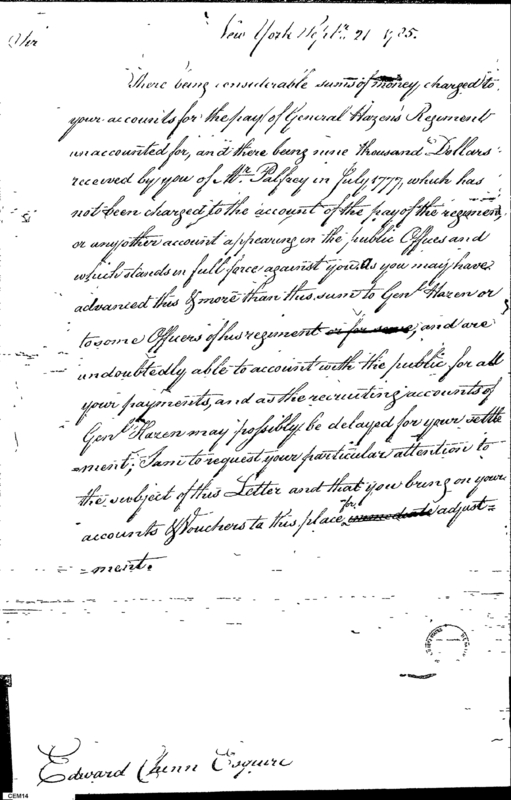 New York Septr. 21 1785.
Sir
There being considerable sums of money charged to
your accounts for the pay of General Hazen's Regiment
unaccounted for, and there being nine thousand Dollars
received by you of Mr. Palfrey in July, 1777, which has
not been charged to the account of the pay of the regiment
or any other account appearing in the public Offices and
which stands in full force against you. As you may have
advanced this & more than this sum to Genl. Hazen or
to some Officers of his regiment or for some, and are
undoubtedly able to account with the public for all
your payments, and as the recruiting accounts of
Genl. Hazen may possibly be delayed for your settle
=ment; I am to request your particular attention to
the subject of this Letter and that you bring on your
accounts & Vouchers to this place for immediate adjust=
=ment.
Edward Chinn Esquire
CEM14